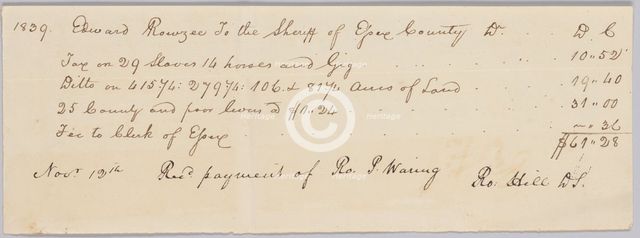 1839. Edward Rowzee To the Sheriff of Essex County Dr. D C
Tax on 29 Slaves 14 horses and Gig 10"52
Ditto on 415¾: 279¾: 106. & 81¾ Acres of Land 19"40
25 County and poor levies @ $1"24 31"00
Fee to Clerk of Essex "36
$61"28
Novr 12th Recd payment of Ro. P. Waring Ro. Hill DS.
heritage